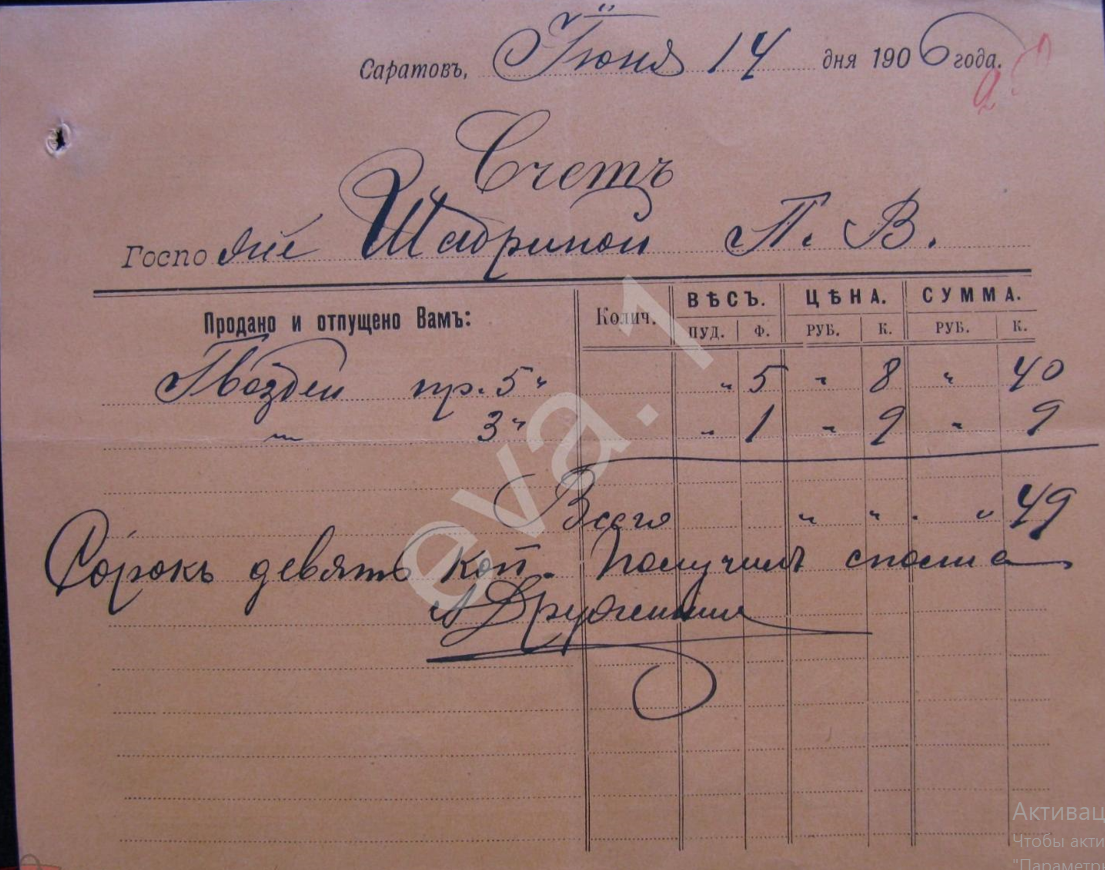 Саратовъ, Іюня 14 дня 1906 года.
Счетъ
Госпожѣ Шабриной П. В.
Продано и отпущено Вамъ: Колич. ВѢСЪ. ЦѢНА. СУММА.
ПУД. Ф. РУБ. К. РУБ. К.
Гвоздей пр. 5" " 5 " 8 " 40
" 3" " 1 " 9 " 9
Всего " " " 49
Сорокъ девять коп. Получилъ сполна
eva.1
Активац
Чтобы акти
"Параметры